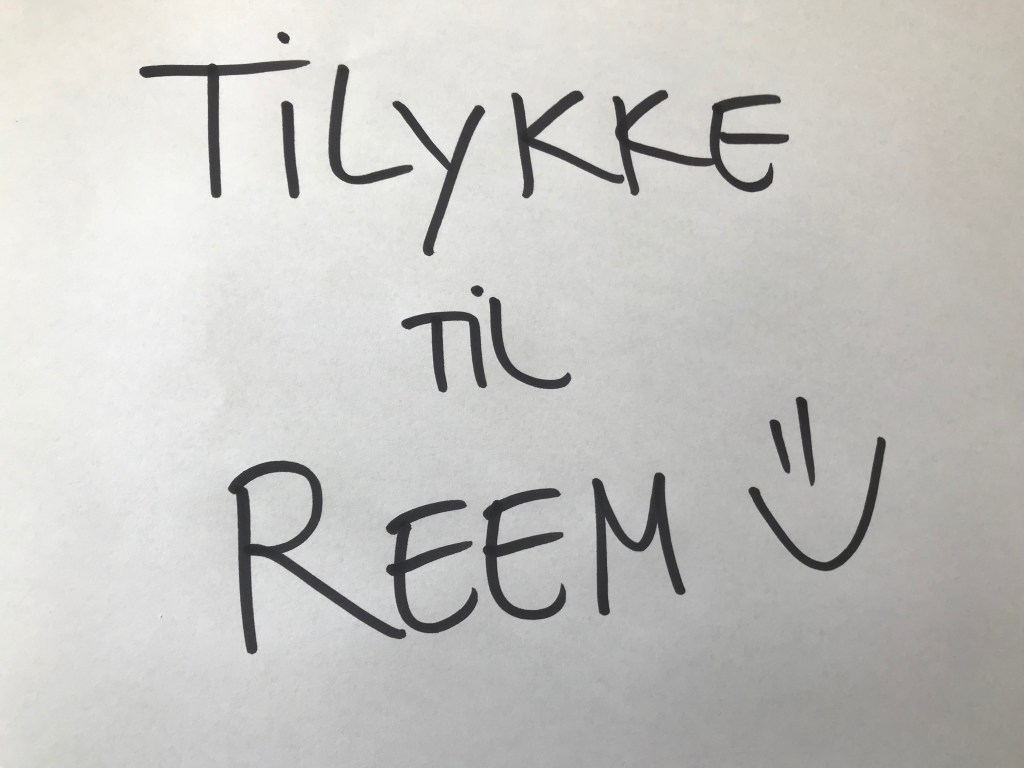 TiLYKKE
TiL
REEM